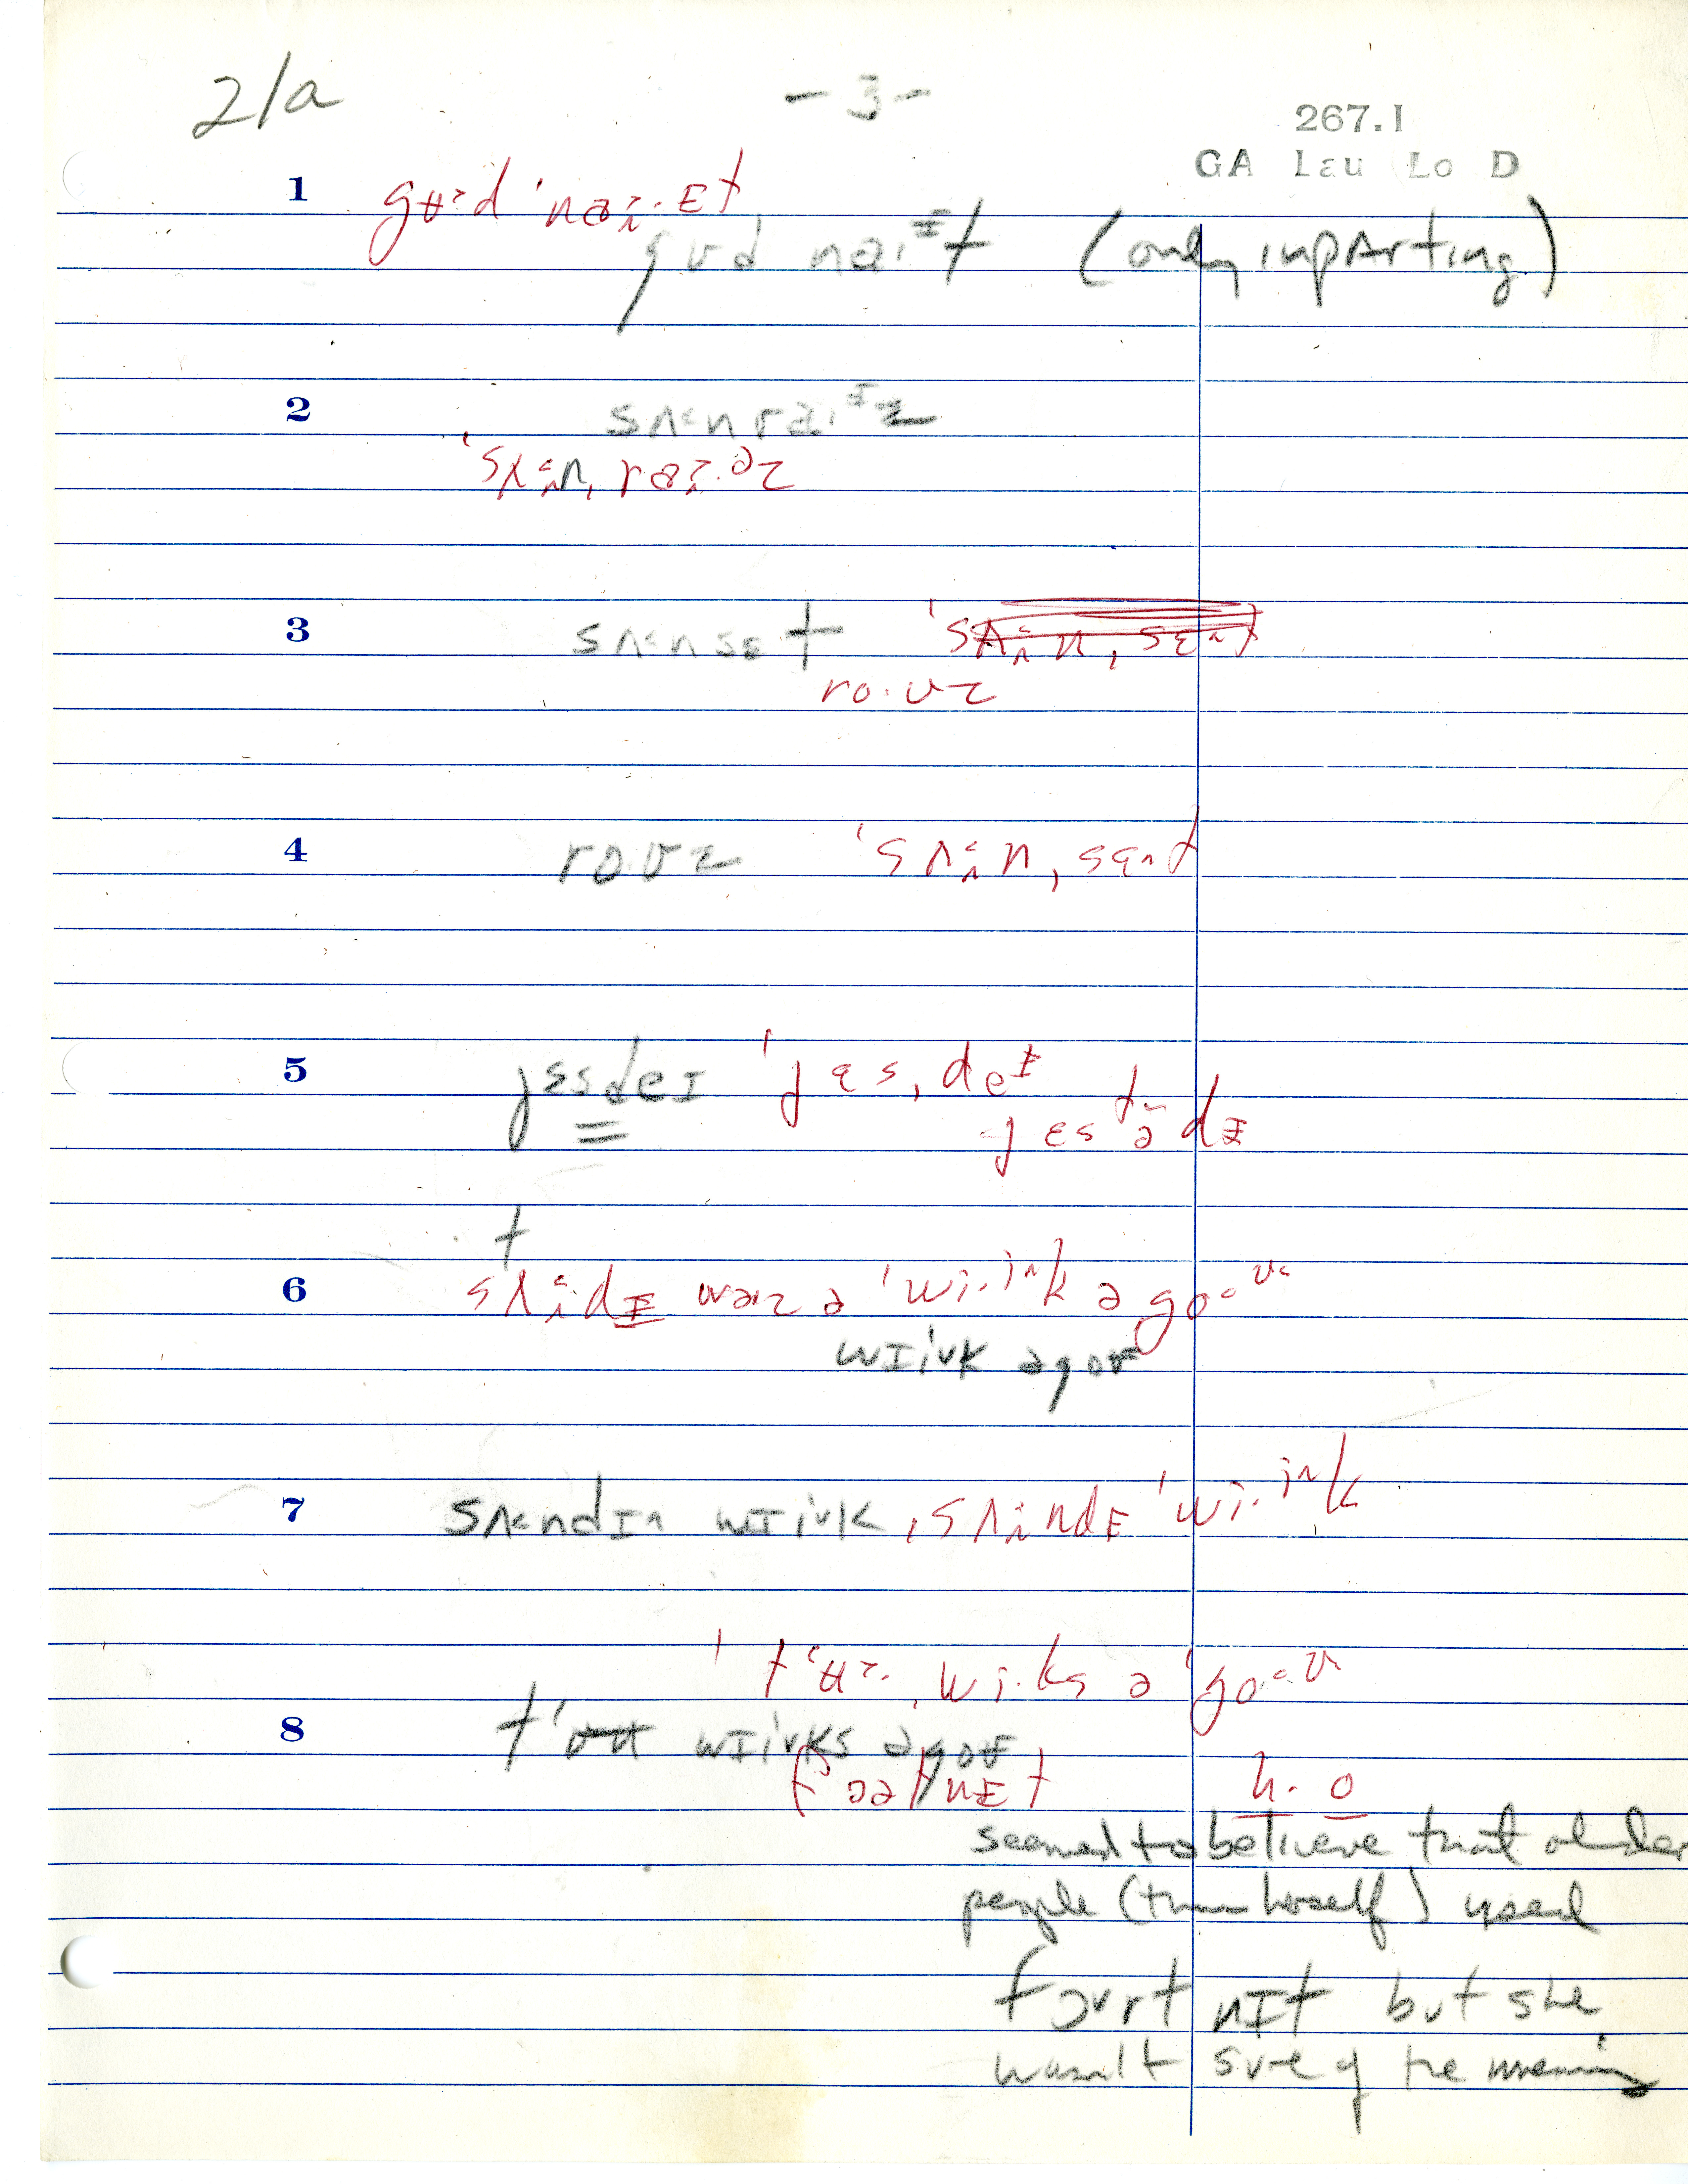 21a - 3 -
267.1
GA Lau Lo D
1 gʉ˃d ˈnaɪ.ɛt
gʊd naɪᴵt (only in parting)
2 sʌ˂nraɪᴵz
ˈsʌ˂n, raɪ.əz
3 sʌ˂nsɛt ˈsʌ˂n, sɛt
ro.ʊz
4 ro.ʊz ˈsʌ˂n, sɛt
5 jɛsdeɪ ˈjɛs, deᴵ
jɛstədɪ
t
6 sʌ˂dɪ waz ə ˈwi.ik əgoʊ
wɪivk əgoʊ
7 sʌ˂ndɪ wɪivk ˌsʌndɪ ˈwi.ik
ˈtʻʉ. wi.ks əˈgoʊ
8 tʻʊu wɪivks əgoʊ
fɔətnɪt h. o
seemed to believe that older
people (than herself) used
fɔʊrtnɪt but she
wasn't sure of the meaning